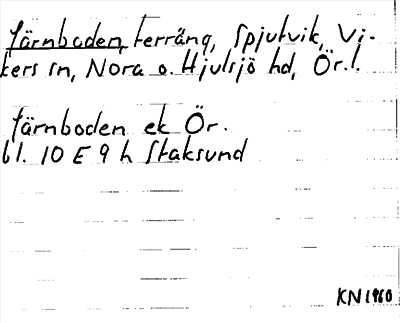 Järnboden, terräng, Spjutvik, Vi-
kers sn, Nora o. Hjulsjö hd, Ör.l.
Järnboden ek Ör.
bl. 10 E 9 h Staksund
KN 1960